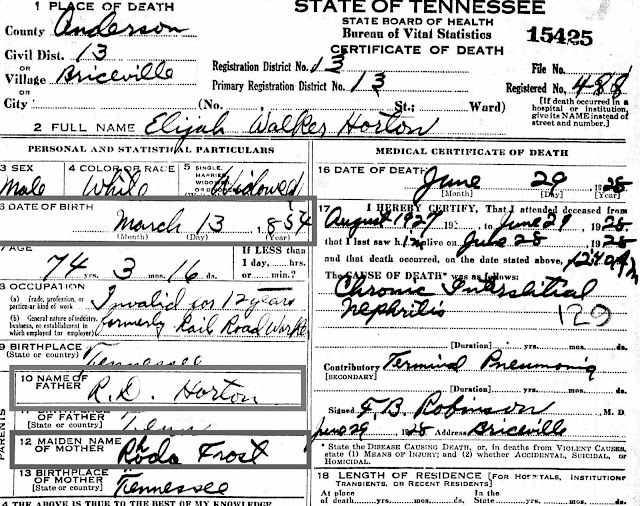 1 PLACE OF DEATH
County Anderson
Civil Dist. 13
OR
Village Briceville
OR
City
STATE OF TENNESSEE
STATE BOARD OF HEALTH
Bureau of Vital Statistics
CERTIFICATE OF DEATH
15425
Registration District No. 13
File No.
Primary Registration District No. 13
Registered No. 488
(No. St.; Ward)
[If death occurred in a
hospital or institution,
give its NAME instead of
street and number.]
2 FULL NAME Elijah Walker Horton
PERSONAL AND STATISTICAL PARTICULARS
3 SEX
Male
4 COLOR OR RACE
White
5 SINGLE,
MARRIED
WIDOWED
OR
Widowed
6 DATE OF BIRTH
March 13, 1854
(Month) (Day) (Year)
7 AGE
74 yrs. 3 mos. 16 ds.
If LESS than
1 day,....hrs.
or....min.?
8 OCCUPATION
(a) Trade, profession, or
particular kind of work
Invalid for 12 years
(b) General nature of industry,
business, or establishment in
which employed (or employer)
formerly Rail Road Worker
9 BIRTHPLACE
(State or country)
Tennessee
PARENTS
10 NAME OF
FATHER
R. D. Horton
11
OF FATHER
[State or country]
Tenn
12 MAIDEN NAME
OF MOTHER
Rhoda Frost
13 BIRTHPLACE
OF MOTHER
[State or country]
Tennessee
THE ABOVE IS TRUE TO THE BEST OF MY KNOWLEDGE
MEDICAL CERTIFICATE OF DEATH
16 DATE OF DEATH
June 29 1928
(Month) (Day) (Year)
17 I HEREBY CERTIFY, That I attended deceased from
August 1927, 19 , to June 29, 1928
that I last saw him alive on June 28, 1928
and that death occurred, on the date stated above,
The CAUSE OF DEATH* was as follows:
Chronic Interstitial
Nephritis
120
(Duration) yrs. mos. ds.
Contributory Terminal Pneumonia
[SECONDARY]
(Duration) yrs. mos. ds.
Signed F. B. Robinson M. D.
June 29 1928 Address Briceville
* State the DISEASE CAUSING DEATH, or, in deaths from VIOLENT CAUSES,
state (1) MEANS OF INJURY; and (2) whether ACCIDENTAL, SUICIDAL, or
HOMICIDAL.
18 LENGTH OF RESIDENCE [FOR HOSPITALS, INSTITUTIONS
TRANSIENTS, OR RECENT RESIDENTS]
At place
of death yrs. mos. ds.
In the
State yrs. mos. ds.